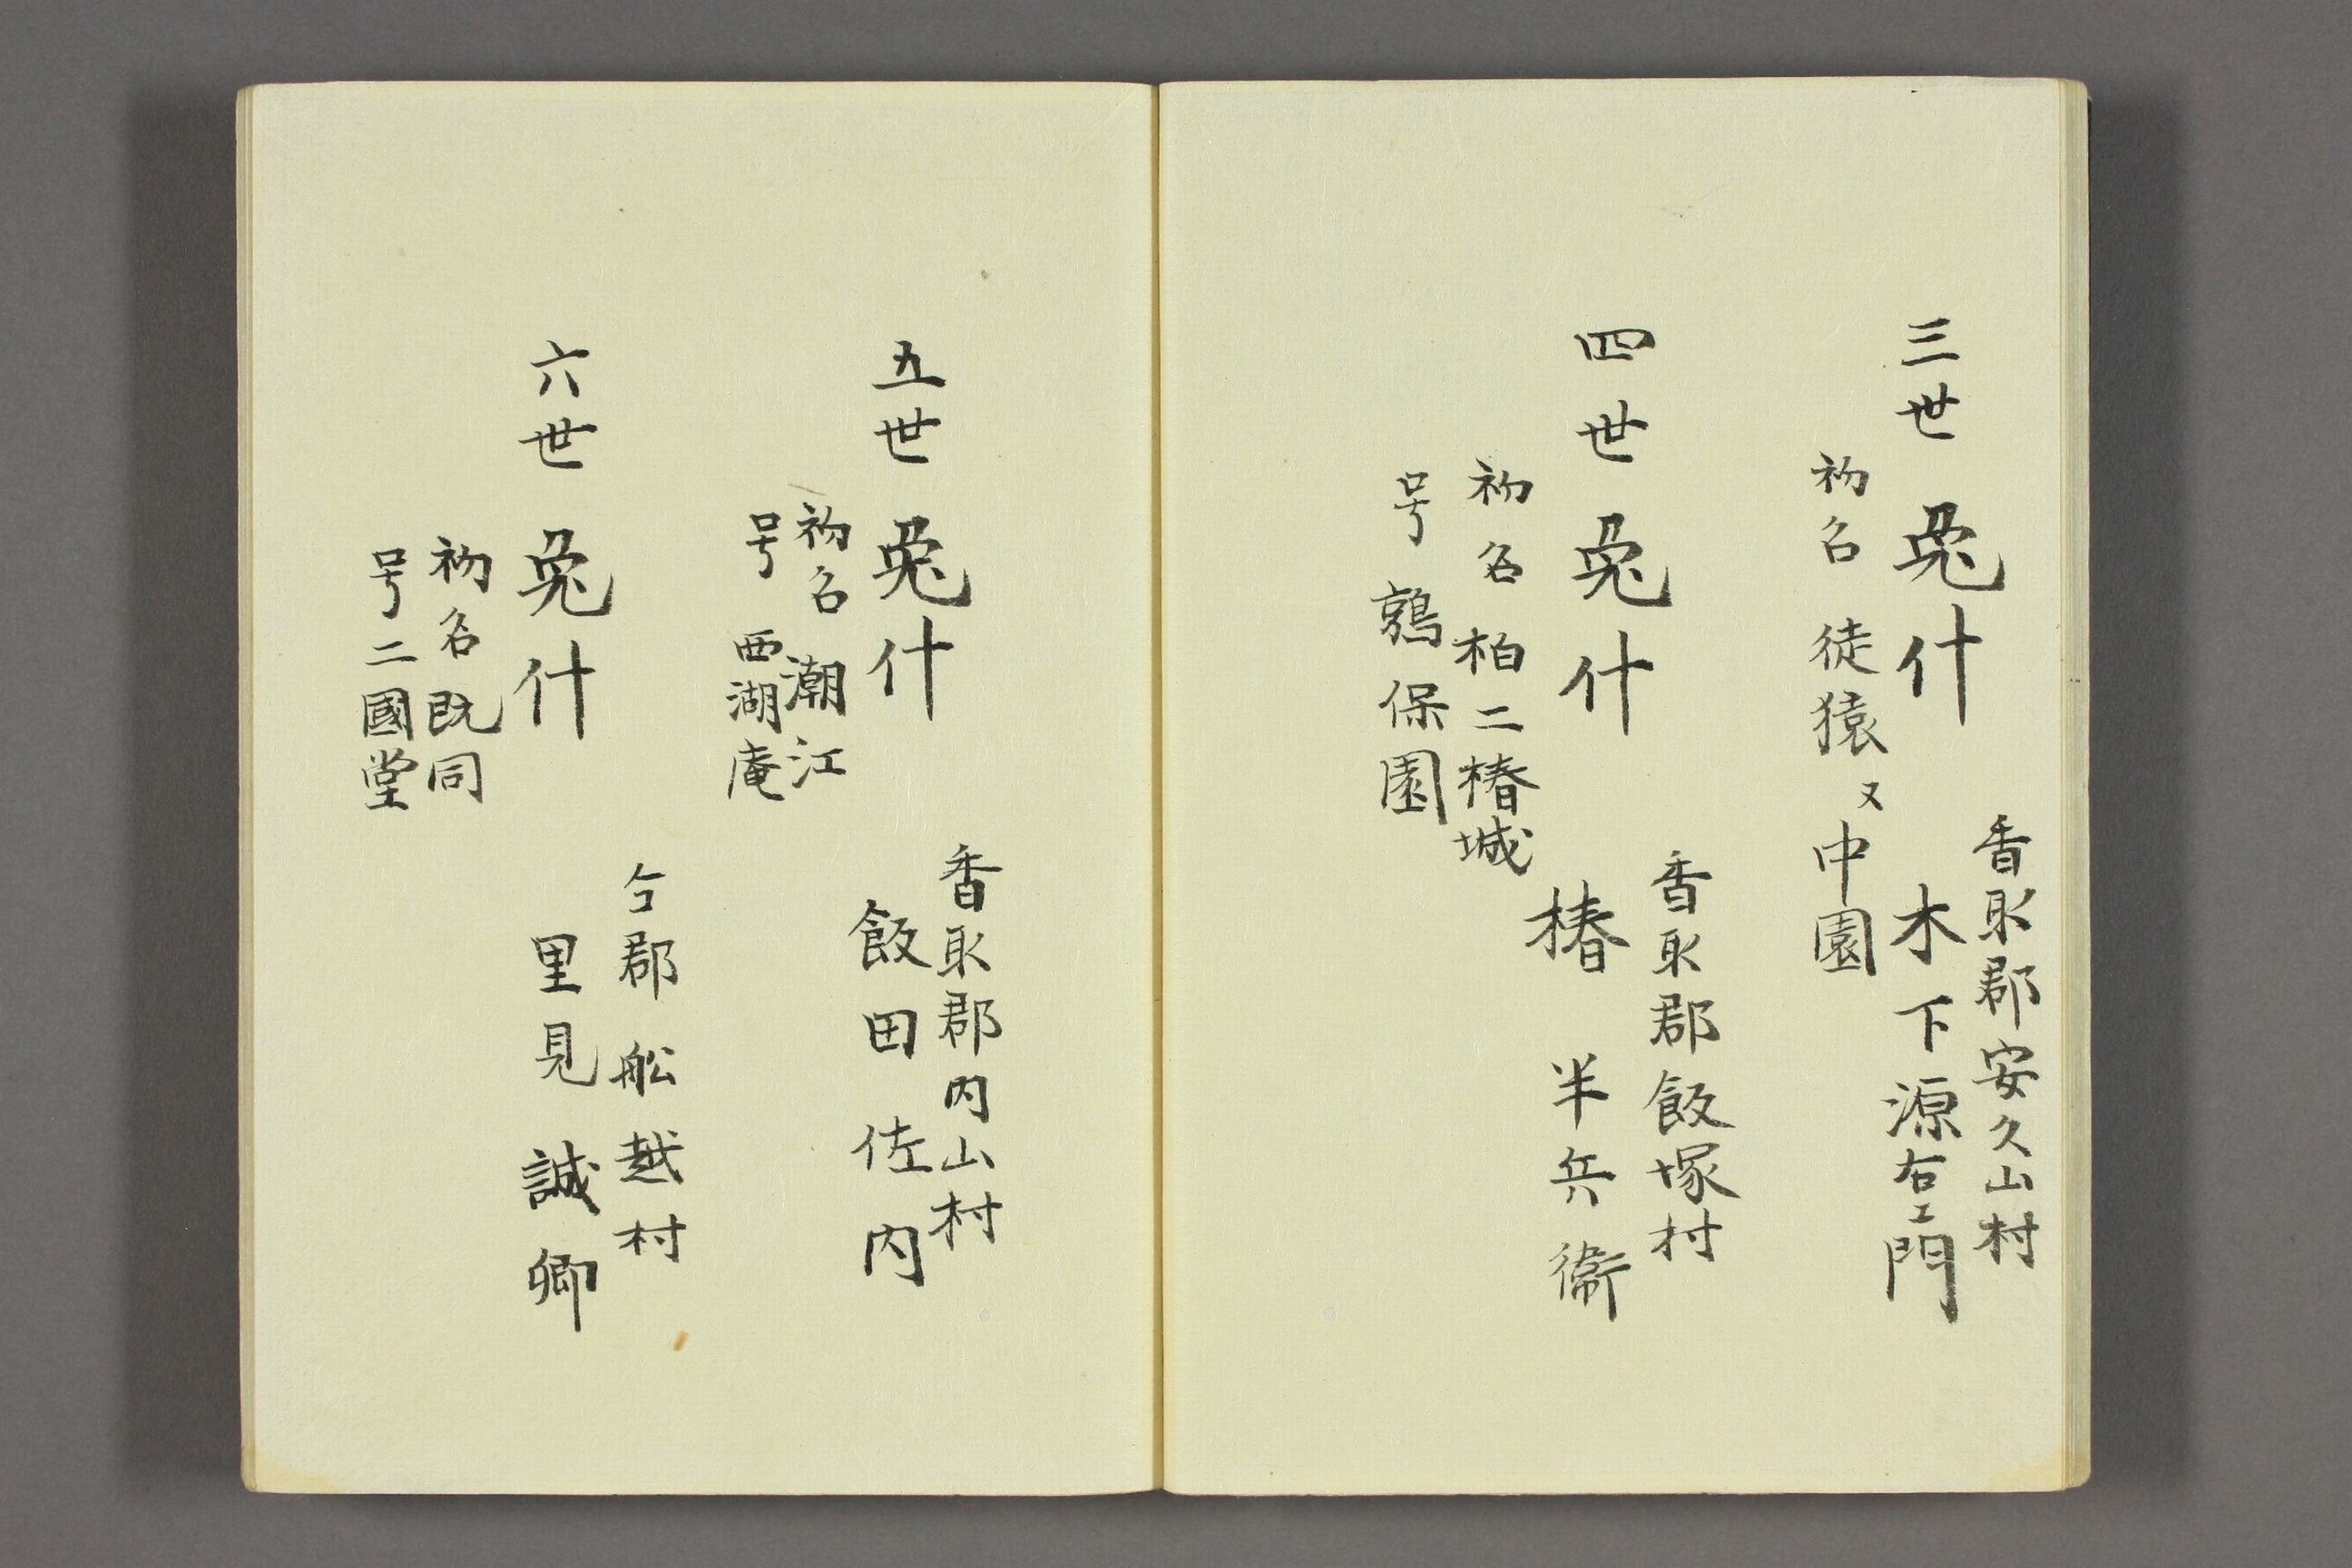 香取郡安久山村
三世 兎什 木下源右エ門
初名 徒猿又中園
香取郡飯塚村
四世 兎什 椿 半兵衛
初名 柏二椿城
号 鶉保園
香取郡内山村
五世 兎什 飯田佐内
初名 潮江
号 西湖庵
仝郡 舩越村
六世 兎什 里見誠卿
初名 既同
号 二國堂